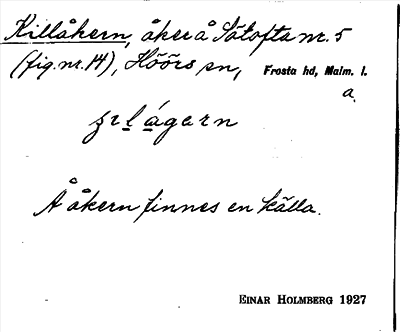 Killåkern, åker å Sätofta nr. 5
(fig. nr. 14), Höörs sn, Frosta hd, Malm. l.
a.
Å åkern finnes en källa.
EINAR HOLMBERG 1927